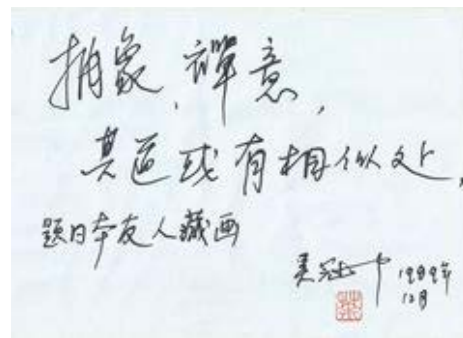 抽象、禅意,
其道或有相似处,
题日本友人藏画
吴冠中 1989年
12月